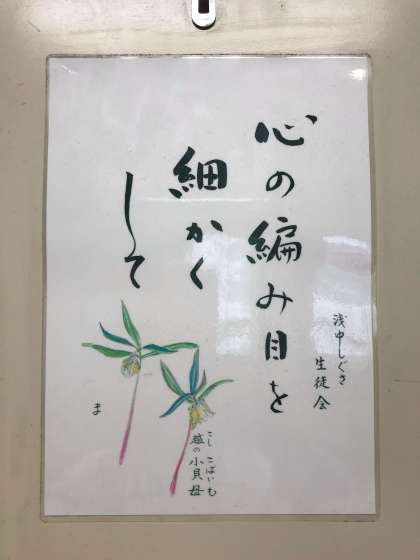 心の編み目を
細かく
して
浅中しぐさ
生徒会
こし こばいも
越の小貝母
ま